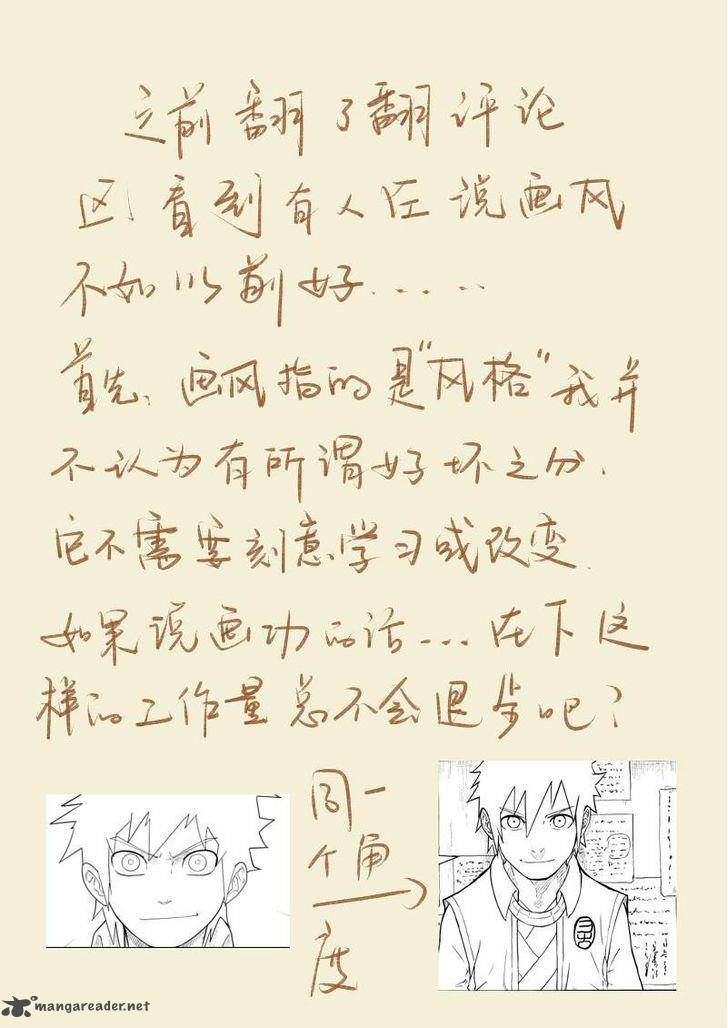 之前翻了翻评论
又看到有人在说画风
不如以前好......
首先,画风指的是"风格"我并
不认为有所谓好坏之分.
它不需要刻意学习或改变.
如果说画功的话...在下这
样的工作量总不会退步吧?
同一
个角
度
mangareader.net